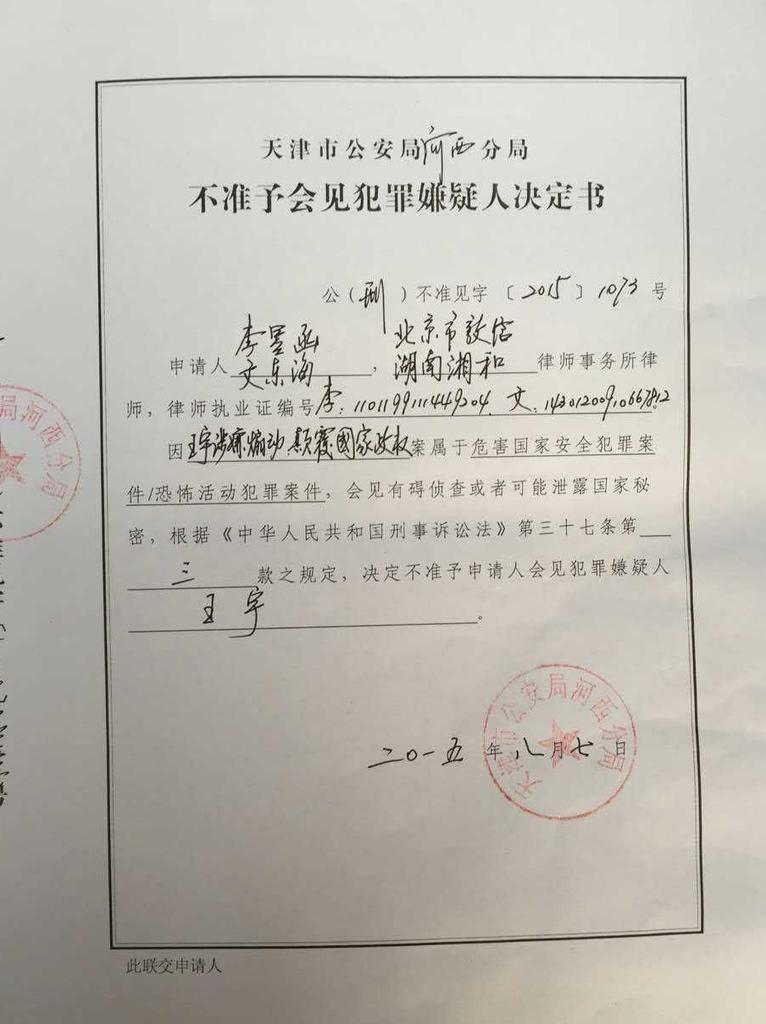 天津市公安局河西分局
不准予会见犯罪嫌疑人决定书
公（刑）不准见字〔2015〕1073号
李昱函 北京市敦信
申请人文东海，湖南湘和律师事务所律
师，律师执业证编号李：11011991114449204 文：14301200910667812
因王宇涉嫌煽动颠覆國家政权案属于危害国家安全犯罪案
件/恐怖活动犯罪案件，会见有碍侦查或者可能泄露国家秘
密，根据《中华人民共和国刑事诉讼法》第三十七条第
三款之规定，决定不准予申请人会见犯罪嫌疑人
王宇。
天津市公安局河西分局
二〇一五年八月七日
此联交申请人
局河西分局